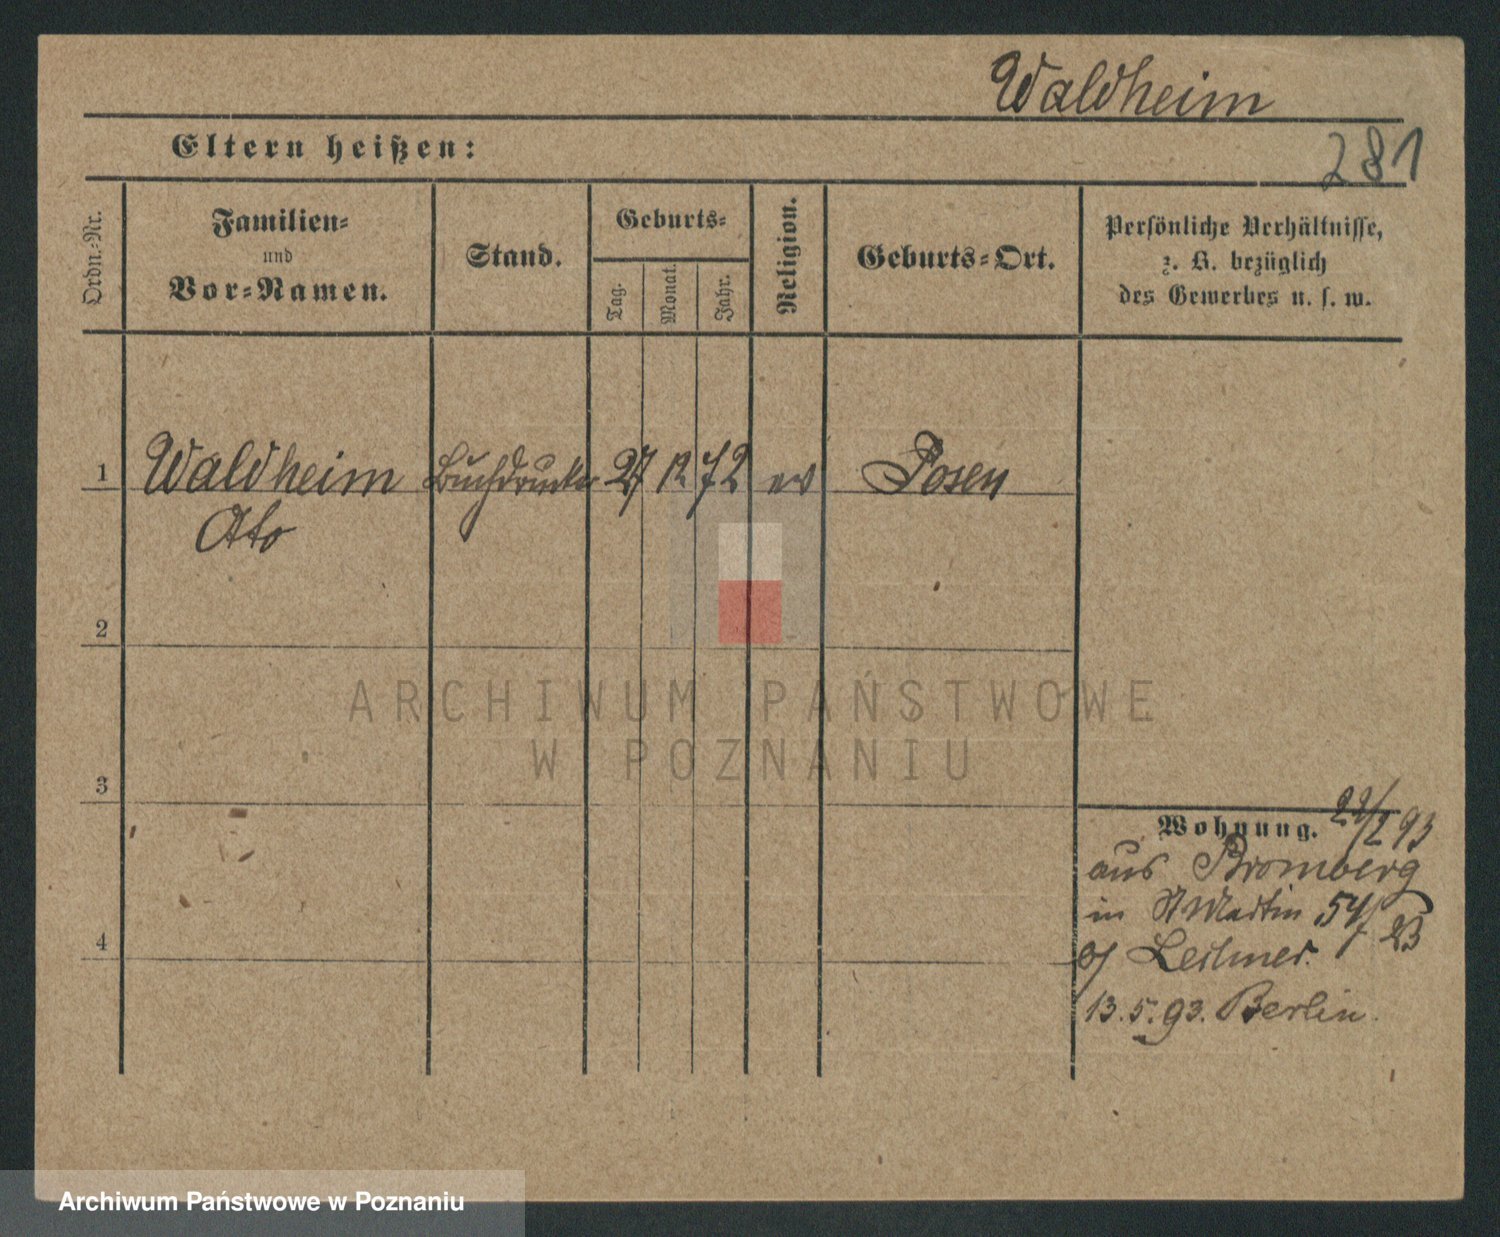 Waldheim
Eltern heißen:
281
Ordn.-Nr.
Familien-
und
Vor-Namen.
Stand.
Geburts-
Tag.
Monat.
Jahr.
Religion.
Geburts-Ort.
Persönliche Verhältnisse,
z. B. bezüglich
des Gewerbes u. s. w.
1 Waldheim Buchdrucker 27 12 72 ev Posen
Otto
2
ARCHIWUM PAŃSTWOWE
W POZNANIU
3
Wohnung. 22/2 93
aus Bromberg
in St Martin 54/
4
13.5.93. Berlin.
Archiwum Państwowe w Poznaniu